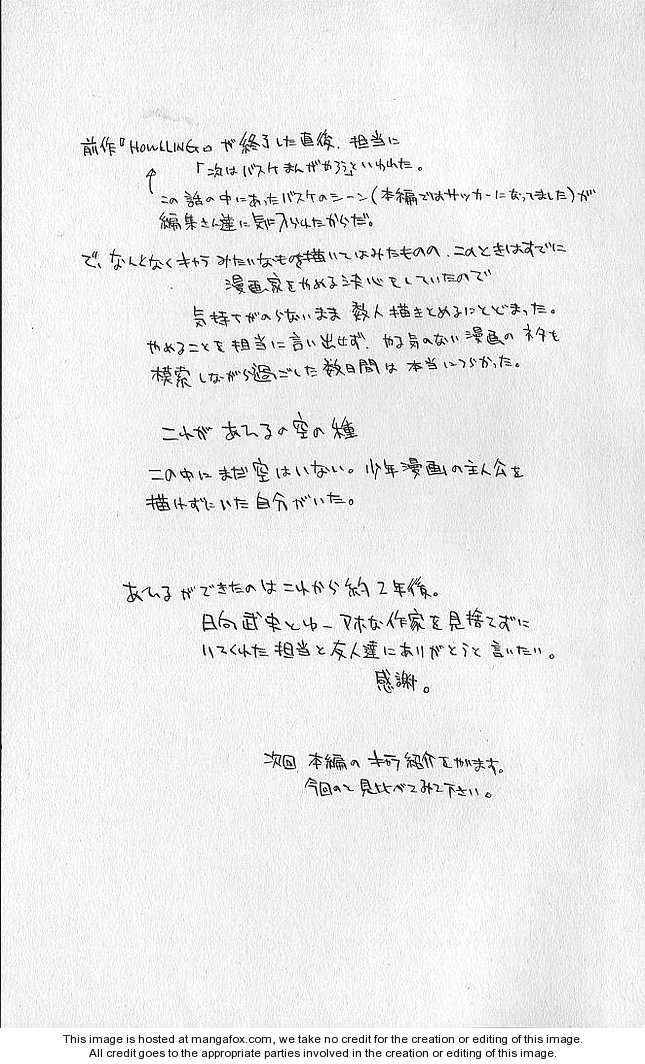 前作『HOWLLING』が終了した直後、担当に
「次はバスケまんがやろう」といわれた。
この話の中にあったバスケのシーン(本編ではサッカーになってました)が
編集さん達に気に入られたからだ。
で、なんとなくキャラみたいなものを描いてはみたものの、このときはすでに
漫画家をやめる決心をしていたので
気持ちがのらないまま 数人描きとめるにとどまった。
やめることを担当に言い出せず、やる気のない漫画のネタを
模索しながら過ごした数日間は本当につらかった。
これが あひるの空の種
この中にまだ空はいない。少年漫画の主人公を
描けずにいた自分がいた。
あひるができたのはこれから約2年後。
日向武史とゆーアホな作家を見捨てずに
いてくれた担当と友人達にありがとうと言いたい。
感謝。
次回 本編のキャラ紹介をやります。
今回のと見比べてみて下さい。
This image is hosted at mangafox.com, we take no credit for the creation or editing of this image.
All credit goes to the appropriate parties involved in the creation or editing of this image.